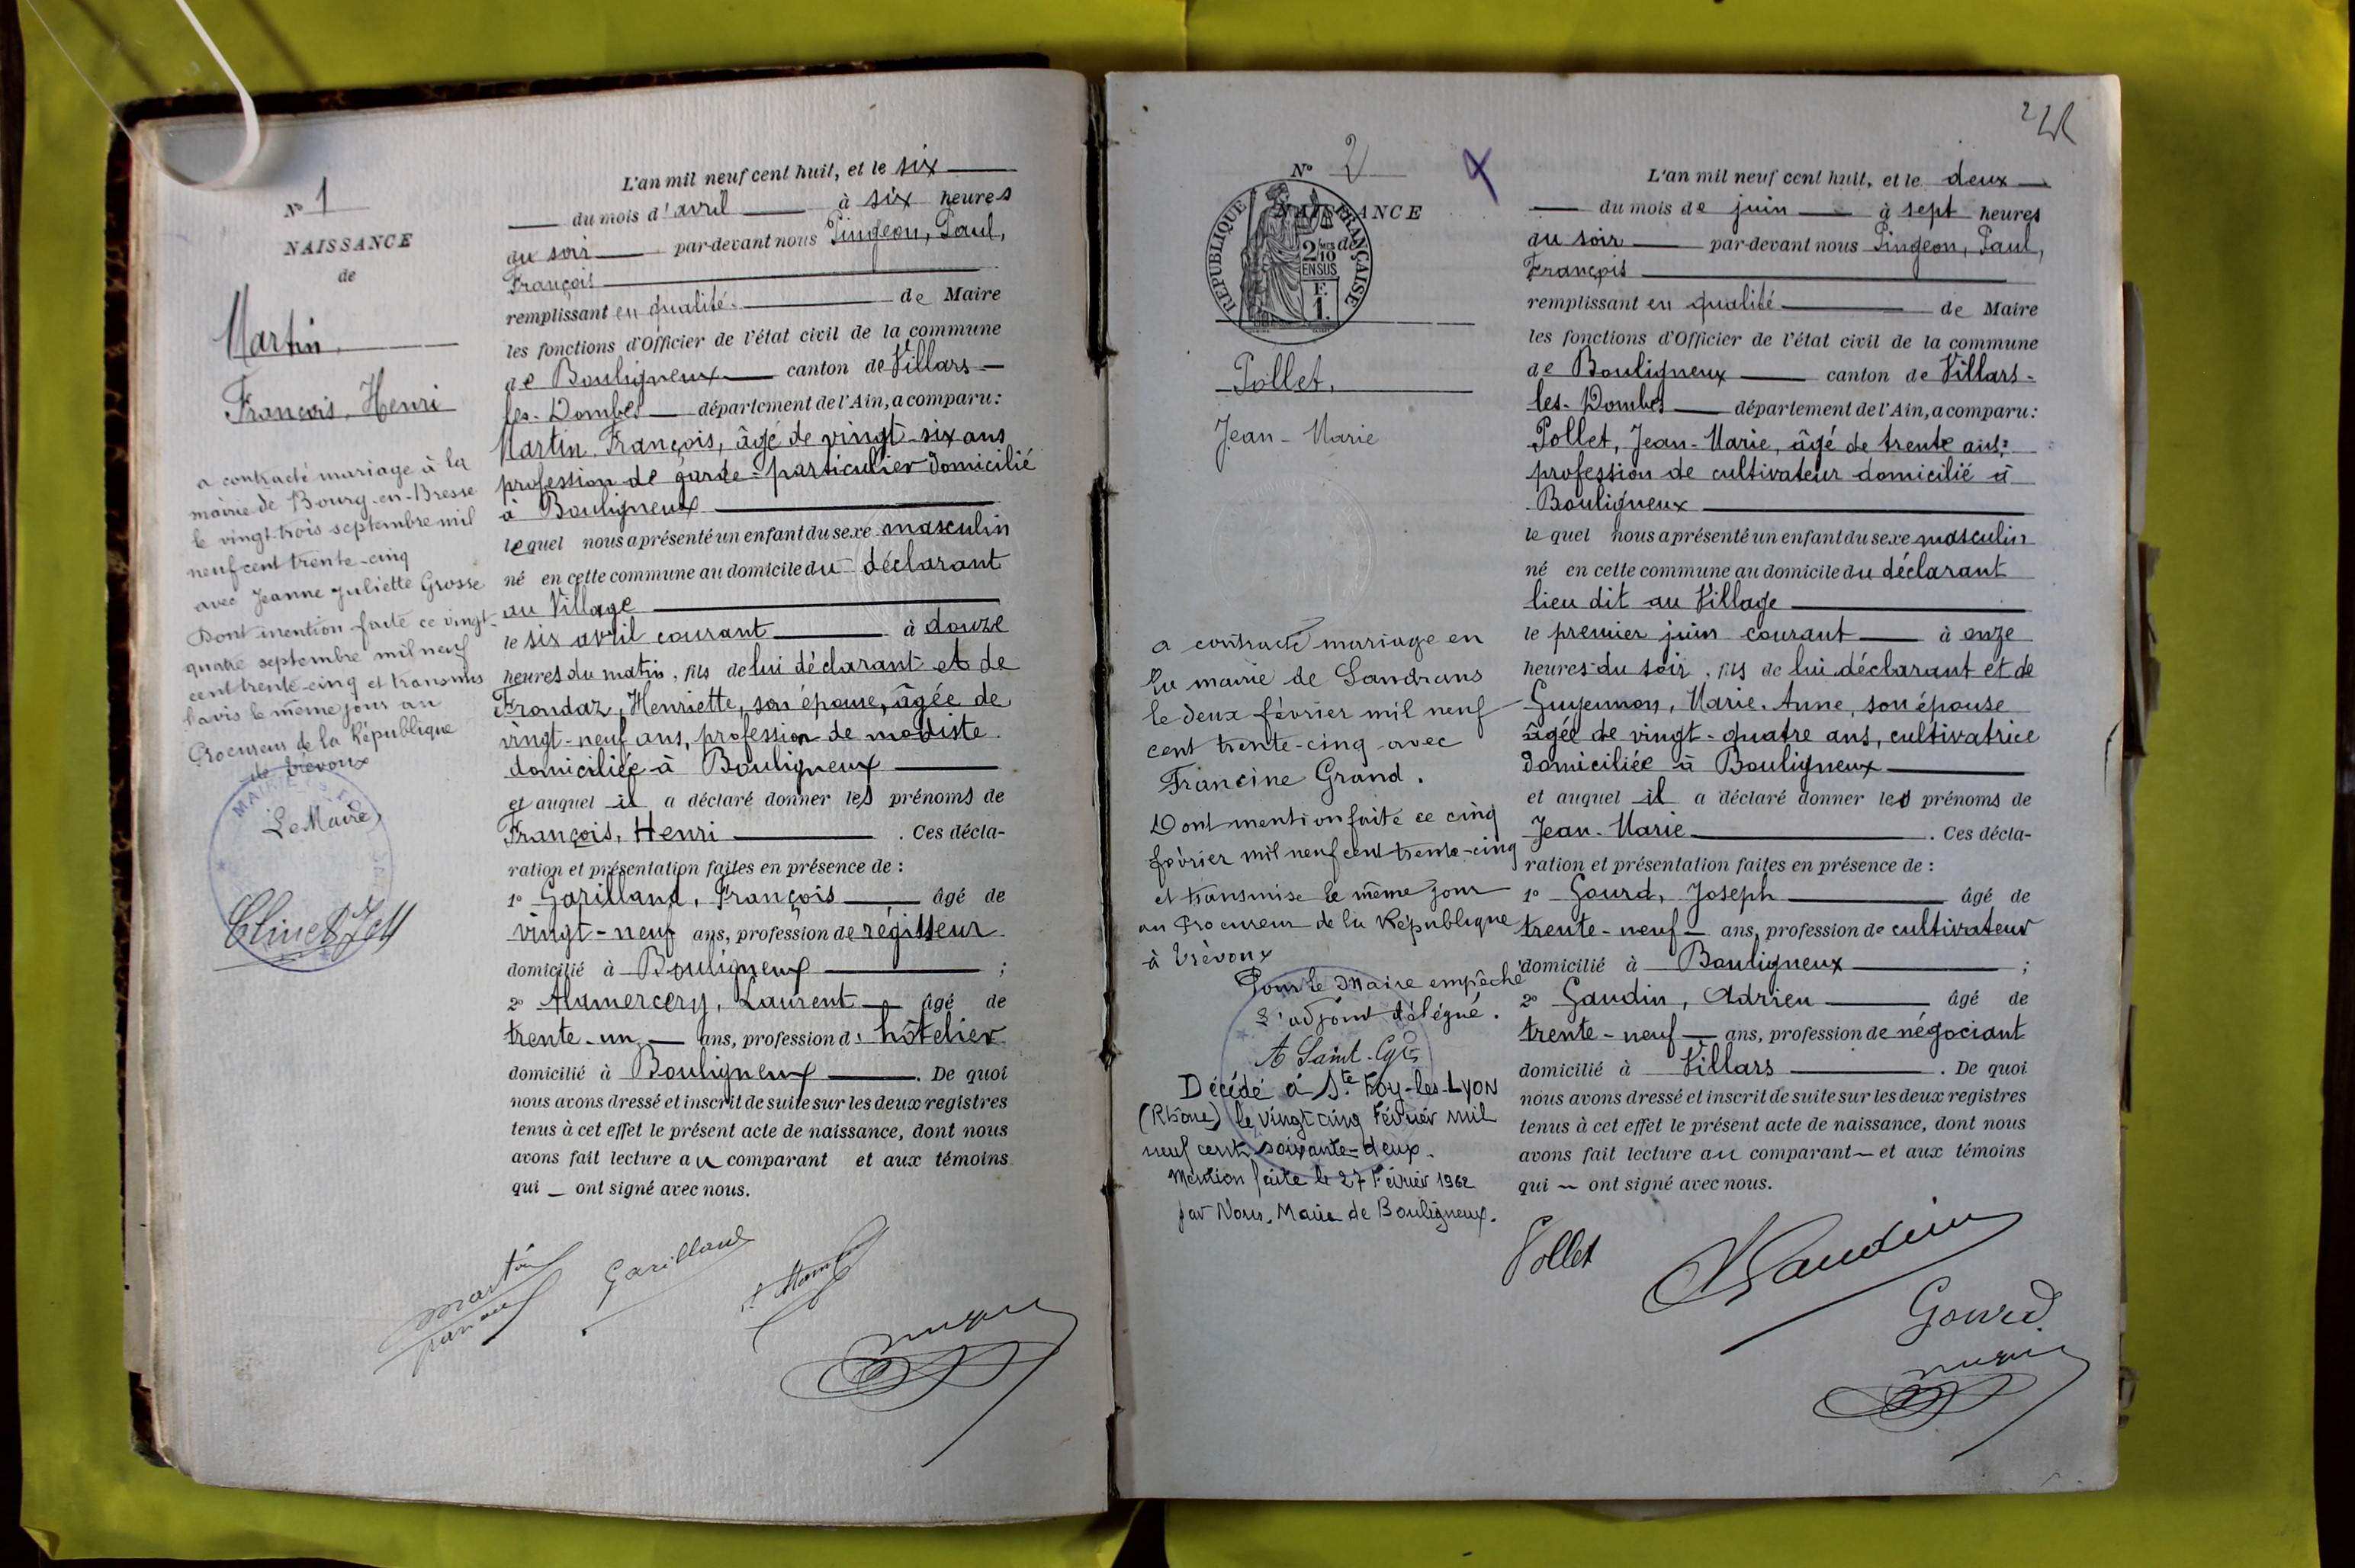 N° 1
NAISSANCE
de
Martin
François, Henri
a contracté mariage à la
mairie de Bourg-en-Bresse
le vingt-trois septembre mil
neuf cent trente-cinq
avec Jeanne Juliette Grosse
Dont mention faite ce vingt-
quatre septembre mil neuf
cent trente-cinq et transmis
l'avis le même jour au
Procureur de la République
de Trévoux
Le Maire,
L'an mil neuf cent huit, et le six
du mois d'avril à six heures
du soir par-devant nous Pingeon, Paul,
François
remplissant en qualité de Maire
les fonctions d'Officier de l'état civil de la commune
de Bouligneux canton de Villars-
les-Dombes département de l'Ain, a comparu:
Martin, François, âgé de vingt-six ans
profession de garde-particulier domicilié
à Bouligneux
lequel nous a présenté un enfant du sexe masculin
né en cette commune au domicile du déclarant
au Village
le six avril courant à douze
heures du matin, fils de lui déclarant et de
Frondaz, Henriette, son épouse, âgée de
vingt-neuf ans, profession de modiste
domiciliée à Bouligneux
et auquel il a déclaré donner les prénoms de
François, Henri . Ces décla-
ration et présentation faites en présence de :
1° Garilland, François âgé de
vingt-neuf ans, profession de régisseur
domicilié à Bouligneux ;
2° Alamercery, Laurent âgé de
trente-un ans, profession d' hôtelier
domicilié à Bouligneux . De quoi
nous avons dressé et inscrit de suite sur les deux registres
tenus à cet effet le présent acte de naissance, dont nous
avons fait lecture au comparant et aux témoins
qui ont signé avec nous.
Martin
Garilland
N° 2
NAISSANCE
de
RÉPUBLIQUE FRANÇAISE
2/10
EN SUS
F.
1.
Pollet,
Jean-Marie
a contracté mariage en
la mairie de Sandrans
le deux février mil neuf
cent trente-cinq avec
Francine Grand.
Dont mention faite ce cinq
février mil neuf cent trente-cinq
et transmise le même jour
au Procureur de la République
à Trévoux
Pour le Maire empêché
L'adjoint délégué.
Décédé à Ste Foy-les-Lyon
(Rhône) le vingt cinq Février mil
neuf cent soixante-deux.
Mention faite le 27 Février 1962
par Nous, Maire de Bouligneux.
L'an mil neuf cent huit, et le deux
du mois de juin à sept heures
du soir par-devant nous Pingeon, Paul,
François
remplissant en qualité de Maire
les fonctions d'Officier de l'état civil de la commune
de Bouligneux canton de Villars-
les-Dombes département de l'Ain, a comparu:
Pollet, Jean-Marie, âgé de trente ans,
profession de cultivateur domicilié à
Bouligneux
lequel nous a présenté un enfant du sexe masculin
né en cette commune au domicile du déclarant
lieu dit au Village
le premier juin courant à onze
heures du soir, fils de lui déclarant et de
Guyennon, Marie-Anne, son épouse
âgée de vingt-quatre ans, cultivatrice
domiciliée à Bouligneux
et auquel il a déclaré donner les prénoms de
Jean-Marie . Ces décla-
ration et présentation faites en présence de :
1° Gourd, Joseph âgé de
trente-neuf ans, profession de cultivateur
domicilié à Bouligneux ;
2° Gaudin, Adrien âgé de
trente-neuf ans, profession de négociant
domicilié à Villars . De quoi
nous avons dressé et inscrit de suite sur les deux registres
tenus à cet effet le présent acte de naissance, dont nous
avons fait lecture au comparant et aux témoins
qui ont signé avec nous.
Pollet
Gaudin
Gourd